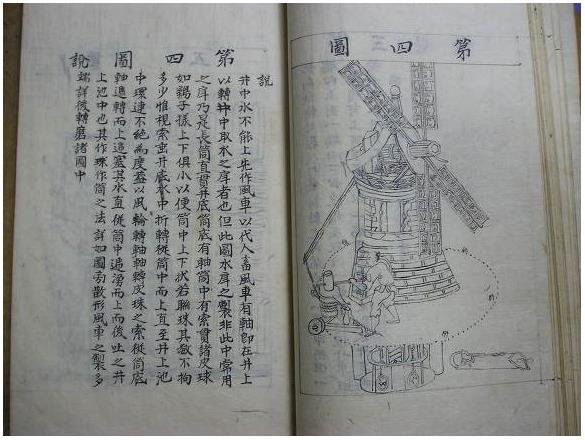 第四圖
第四圖說
說
井中水不能上先作風車以代人畜風車有軸即在井上
以轉井中取水之戽者也但此圖水戽之製非此中常用
之戽乃是長筒直貫井底筒底有軸筒中有索貫諸皮球
如鷄子樣上下俱小以便筒中上下狀若聯珠其數不拘
多少惟視索垂井底水中折轉從筒中而上直至井上池
中環連不絕為度蓋以風輪轉軸軸轉皮球之索從筒底
軸轉而上追塞其水直從筒中追湧而上而後吐之井
上池中也其作球作筒之法詳如圖旁散形風車之製多
端詳後轉磨諸圖中